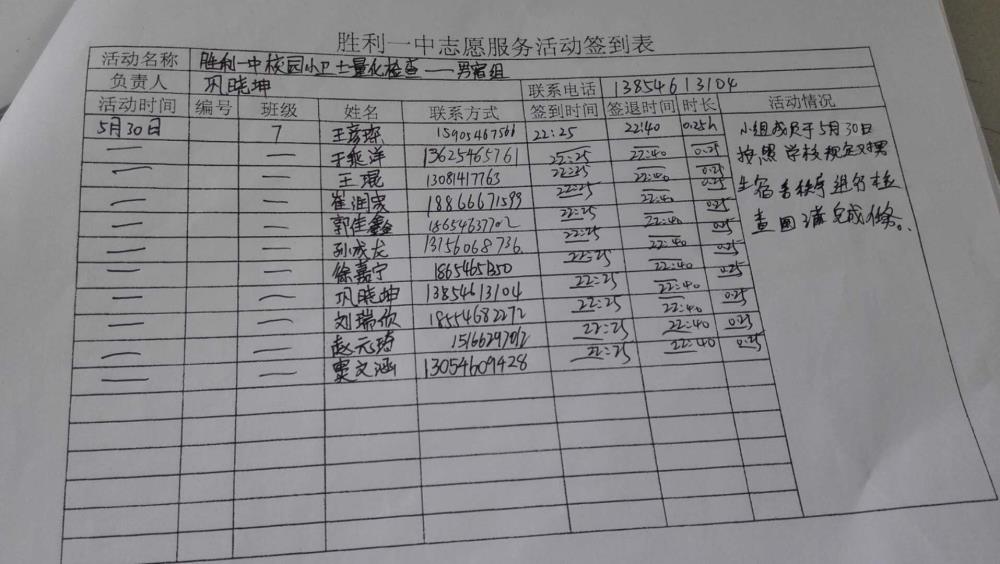 胜利一中志愿服务活动签到表
活动名称 胜利一中校园小卫士量化检查——男宿组
负责人 巩晓坤 联系电话 13854613104
活动时间 编号 班级 姓名 联系方式 签到时间 签退时间 时长 活动情况
5月30日 7 王彦琛 15905467566 22:25 22:40 0.25h 小组成员于5月30日
于乘洋 13625465761 22:25 22:40 0.25 按照学校规定对男
王琨 13081417763 22:25 22:40 0.25 生宿舍秩序组织检
崔润宸 18866671599 22:25 22:40 0.25 查圆满完成任务。
郭佳鑫 18654637702 22:25 22:40 0.25
孙成龙 13156068736 22:25 22:40 0.25
徐嘉宁 22:25 22:40 0.25
巩晓坤 13854613104 22:25 22:40 0.25
刘瑞欣 18554682272 22:25 22:40 0.25
赵元琦 22:25 22:40 0.25
窦文涵 13054609428 22:25 22:40 0.25